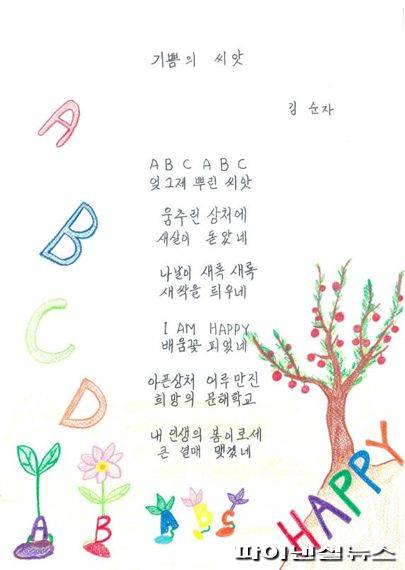 기쁨의 씨앗
김 순자
A B C A B C
엊그제 뿌린 씨앗
움추린 상처에
새살이 돋았네
나날이 새록 새록
새싹을 틔우네
I AM HAPPY
배움꽃 피었네
아픈상처 어루만진
희망의 문해학교
내 인생의 봄이로세
큰 열매 맺겠네
A
B
C
D
A B A B C
HAPPY
파이낸셜뉴스